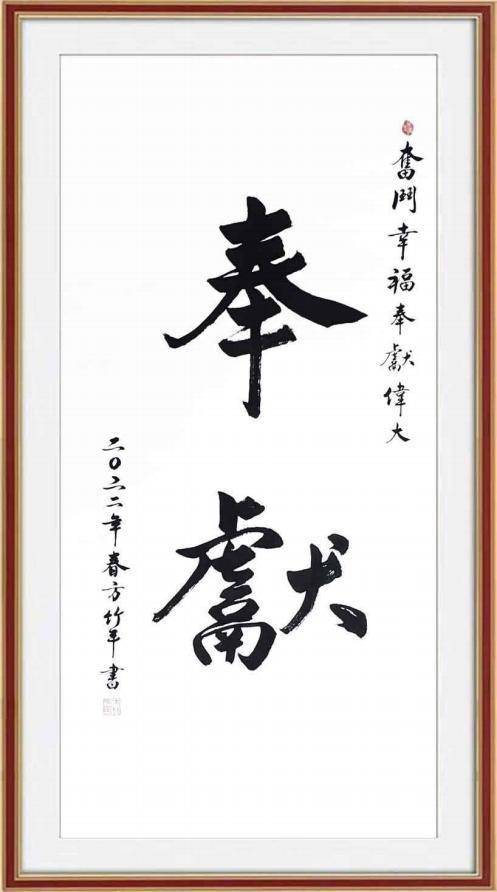 奮鬥幸福奉獻偉大
奉獻
二〇二二年春方竹平書